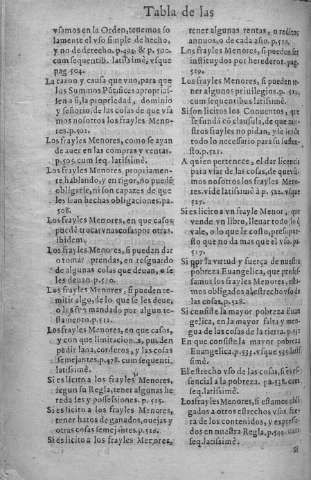 Tabla de las
vsamos en la Orden, tenemos so
lamente el vso simple de hecho,
y no de derecho. p.492. & p. 500.
cum sequentib. latissimè, vsque
pag. 504.
La razon y causa que vuo, para que
los Summos Pótifices apropriasen a si, la propriedad, dominio
y señorio, de las cosas de que vsa
mos nosotros los frayles Menores. p.502.
Los frayles Menores, como se ayan
de auer en las compras y ventas.
p.505. cum seq. latissimè.
Los frayles Menores, propriamente hablando, y en rigor, no puedē
obligarse, ni son capaces de que
les sean hechas obligaciones. pa.
508.
Los frayles Menores, en que casos
puedē trocar vnas cosas por otras
ibidem.
Los frayles Menores, si puedan dar
o tomar prendas, en resguardo
de algunas cosas que deuan, o se
les deuan. p.510.
Los frayles Menores, si pueden remitir algo, de lo que se les deue,
o les es mandado por algun testamento. p.512.
Los frayles Menores, en que casos,
y con que limitacion, puedan
pedir lana, corderos, y las cosas
semejantes. p.478. cum sequenti.
latissimè.
Si es licito a los frayles Menores,
segun su Regla, tener algunas heredades y possessiones. p. 515.
Si es licito a los frayles Menores,
tener hatos de ganados, ouejas y
otras cosas semejantes. p.516.
Si es licito a los frayles Menores,
tener algunas rentas, o reditos
annuos, o de cada año. p.510.
Los frayles Menores, si pueden ser
instituydos por herederos. pag.
509.
Los frayles Menores, si pueden tener algunos priuilegios. p.512.
cum sequentibus latissimè.
Si son licitos los Conuentos, que
se fundā cō clausula, de que nuestros frayles no pidan, y se les dē
todo lo necessario para su sustento. p.521.
A quien pertenece, el dar licencia
para vsar de las cosas, de que vsamos nosotros los frayles Menores. vide latissimè à p. 522. vsque
527.
Si es licito a vn frayle Menor, que
vende vn libro, lleuar todo lo q̄
vale, o lo que le costo, presupuesto que no da mas que el vso. pa.
517.
Si por la virtud y fuerça de nuestra
pobreza Euangelica, que professamos los frayles Menores, estamos obligados al estrecho vso de
las cosas. p.528.
Si consiste la mayor pobreza Euangelica, en la mayor falta y mengua de las cosas de la tierra. p.532
En que consiste la mayor pobreza
Euangelica. p.533. vsque 535. latissimè.
El estrecho vso de las cosas, si es essencial a la pobreza. pa.538. cum
seq. latissimè.
Los frayles Menores, si estamos obligados a otros estrechos vsos, fuera de los contenidos, y expressados en nuestra Regla. p.540. cum
seq. latissimè.
Si